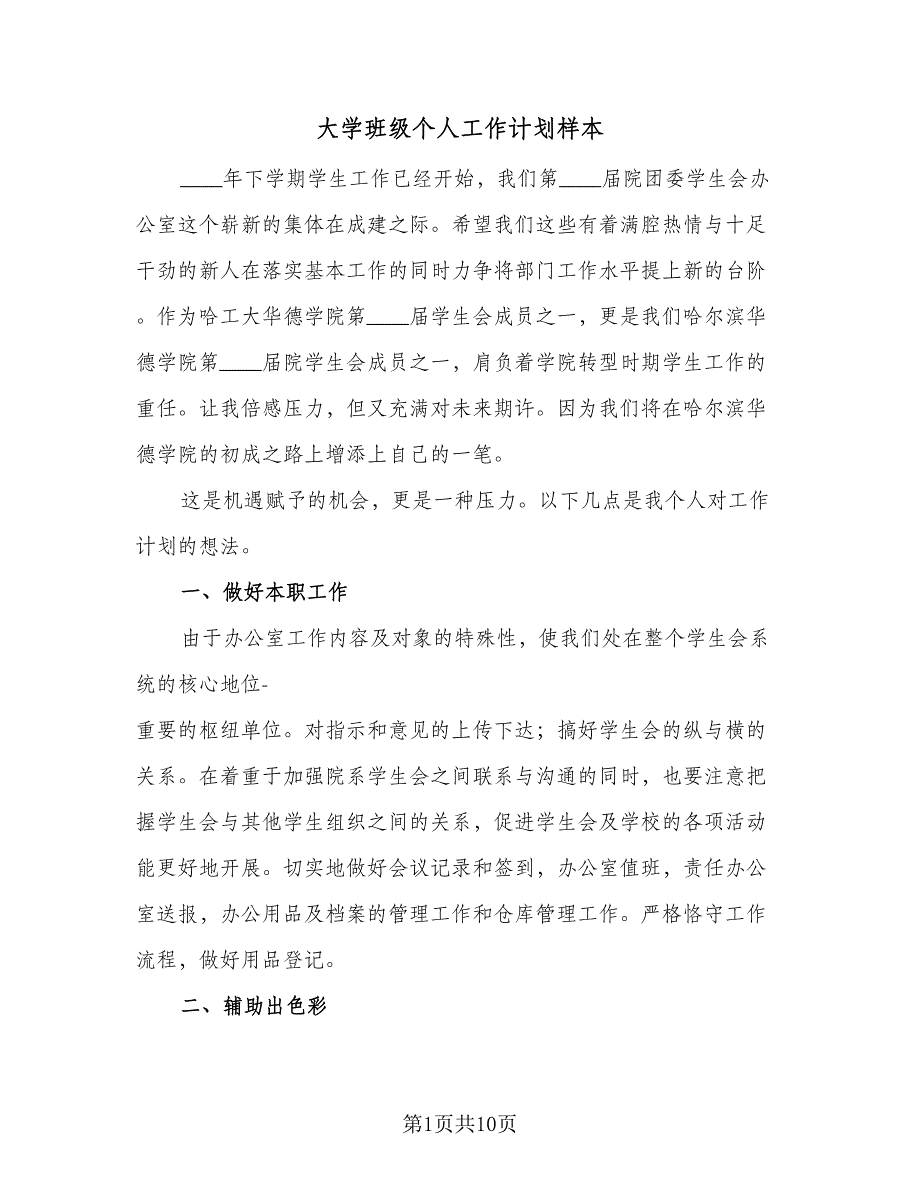 大学班级个人工作计划样本
____年下学期学生工作已经开始，我们第____届院团委学生会办
公室这个崭新的集体在成建之际。希望我们这些有着满腔热情与十足
干劲的新人在落实基本工作的同时力争将部门工作水平提上新的台阶
。作为哈工大华德学院第____届学生会成员之一，更是我们哈尔滨华
德学院第____届院学生会成员之一，肩负着学院转型时期学生工作的
重任。让我倍感压力，但又充满对未来期许。因为我们将在哈尔滨华
德学院的初成之路上增添上自己的一笔。
这是机遇赋予的机会，更是一种压力。以下几点是我个人对工作
计划的想法。
一、做好本职工作
由于办公室工作内容及对象的特殊性，使我们处在整个学生会系
统的核心地位-
重要的枢纽单位。对指示和意见的上传下达；搞好学生会的纵与横的
关系。在着重于加强院系学生会之间联系与沟通的同时，也要注意把
握学生会与其他学生组织之间的关系，促进学生会及学校的各项活动
能更好地开展。切实地做好会议记录和签到，办公室值班，责任办公
室送报，办公用品及档案的管理工作和仓库管理工作。严格恪守工作
流程，做好用品登记。
二、辅助出色彩
第1页共10页